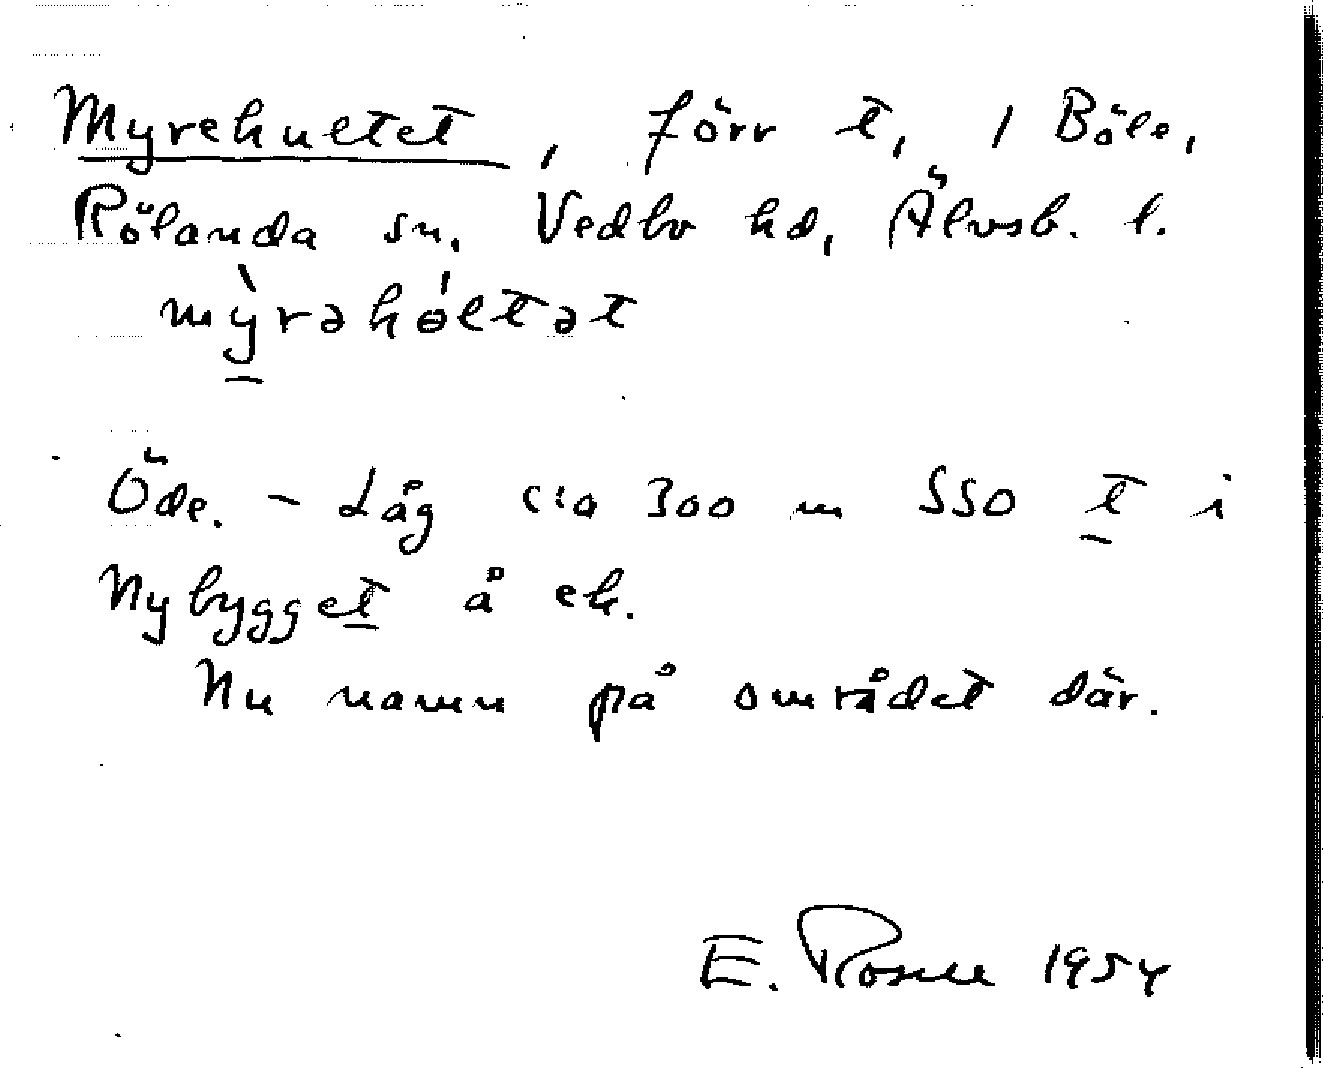 Myrehultet, förr t, / Böle,
Rölanda sn, Vedbo hd, Älvsb. l.
mỳ̠rəhóltət
Öde. - Låg c:a 300 m SSO t̲ i
Nybygget̲ å ek.
Nu namn på området där.
E. Rosell 1954